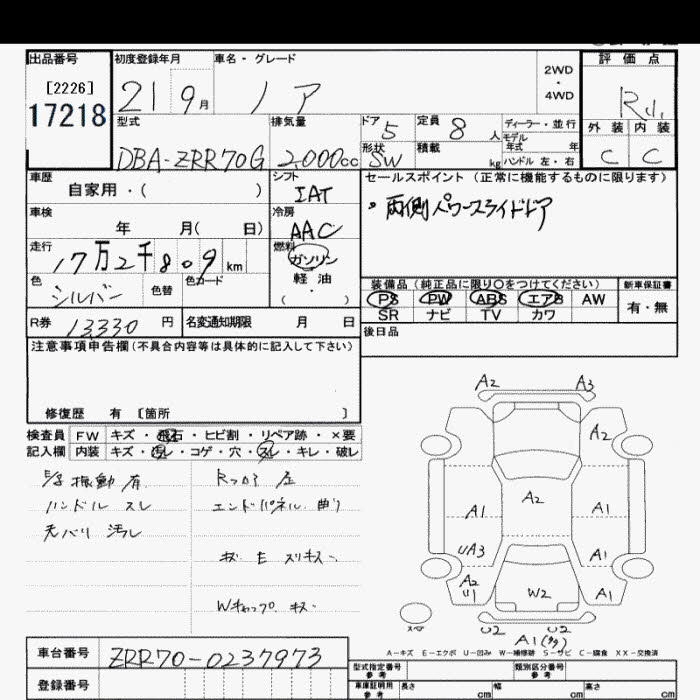 出品番号 初度登録年月 車名・グレード 評価点
[2226]
17218
21 9月 ノア
2WD
・
4WD
型式 排気量 ドア 5 定員 8人 ディーラー・並行
モデル
年式 年
外装 内装
DBA-ZRR70G 2,000cc 形状 SW 積載 kg ハンドル 左・右
C C
車歴 シフト セールスポイント (正常に機能するものに限ります)
自家用・( ) IAT
。両側パワースライドドア
車検 冷房
年 月( 日) AAC
走行 燃料
17万2千809km ガソリン
軽油
・
( )
色 シルバー 色替 色コード
装備品 (純正品に限り〇をつけてください) 新車保証書
PS PW ABS エアB AW 有・無
SR ナビ TV カワ
R券 13,330円 名変通知期限 月 日
後日品
注意事項申告欄(不具合内容等は具体的に記入して下さい)
修復歴 有 [箇所 ]
検査員 FW キズ・飛石・ヒビ割・リペア跡・×要
記入欄 内装 キズ・汚レ・コゲ・穴・スレ・キレ・破レ
ハンドル スレ
エンドパネル 曲り
内バリ 汚レ
A2 A3
A2
A2
A1 A1
UA3 A1
A2
U1 W2 A1
U2 U2
A1
A-キズ E-エクボ U-凹み W-補修跡 S-サビ C-腐食 XX-交換済
車台番号 ZRR70-0237973
型式指定番号
参考
類別区分番号
参考
登録番号
車庫証明用
参考
長さ cm 幅 cm 高さ cm